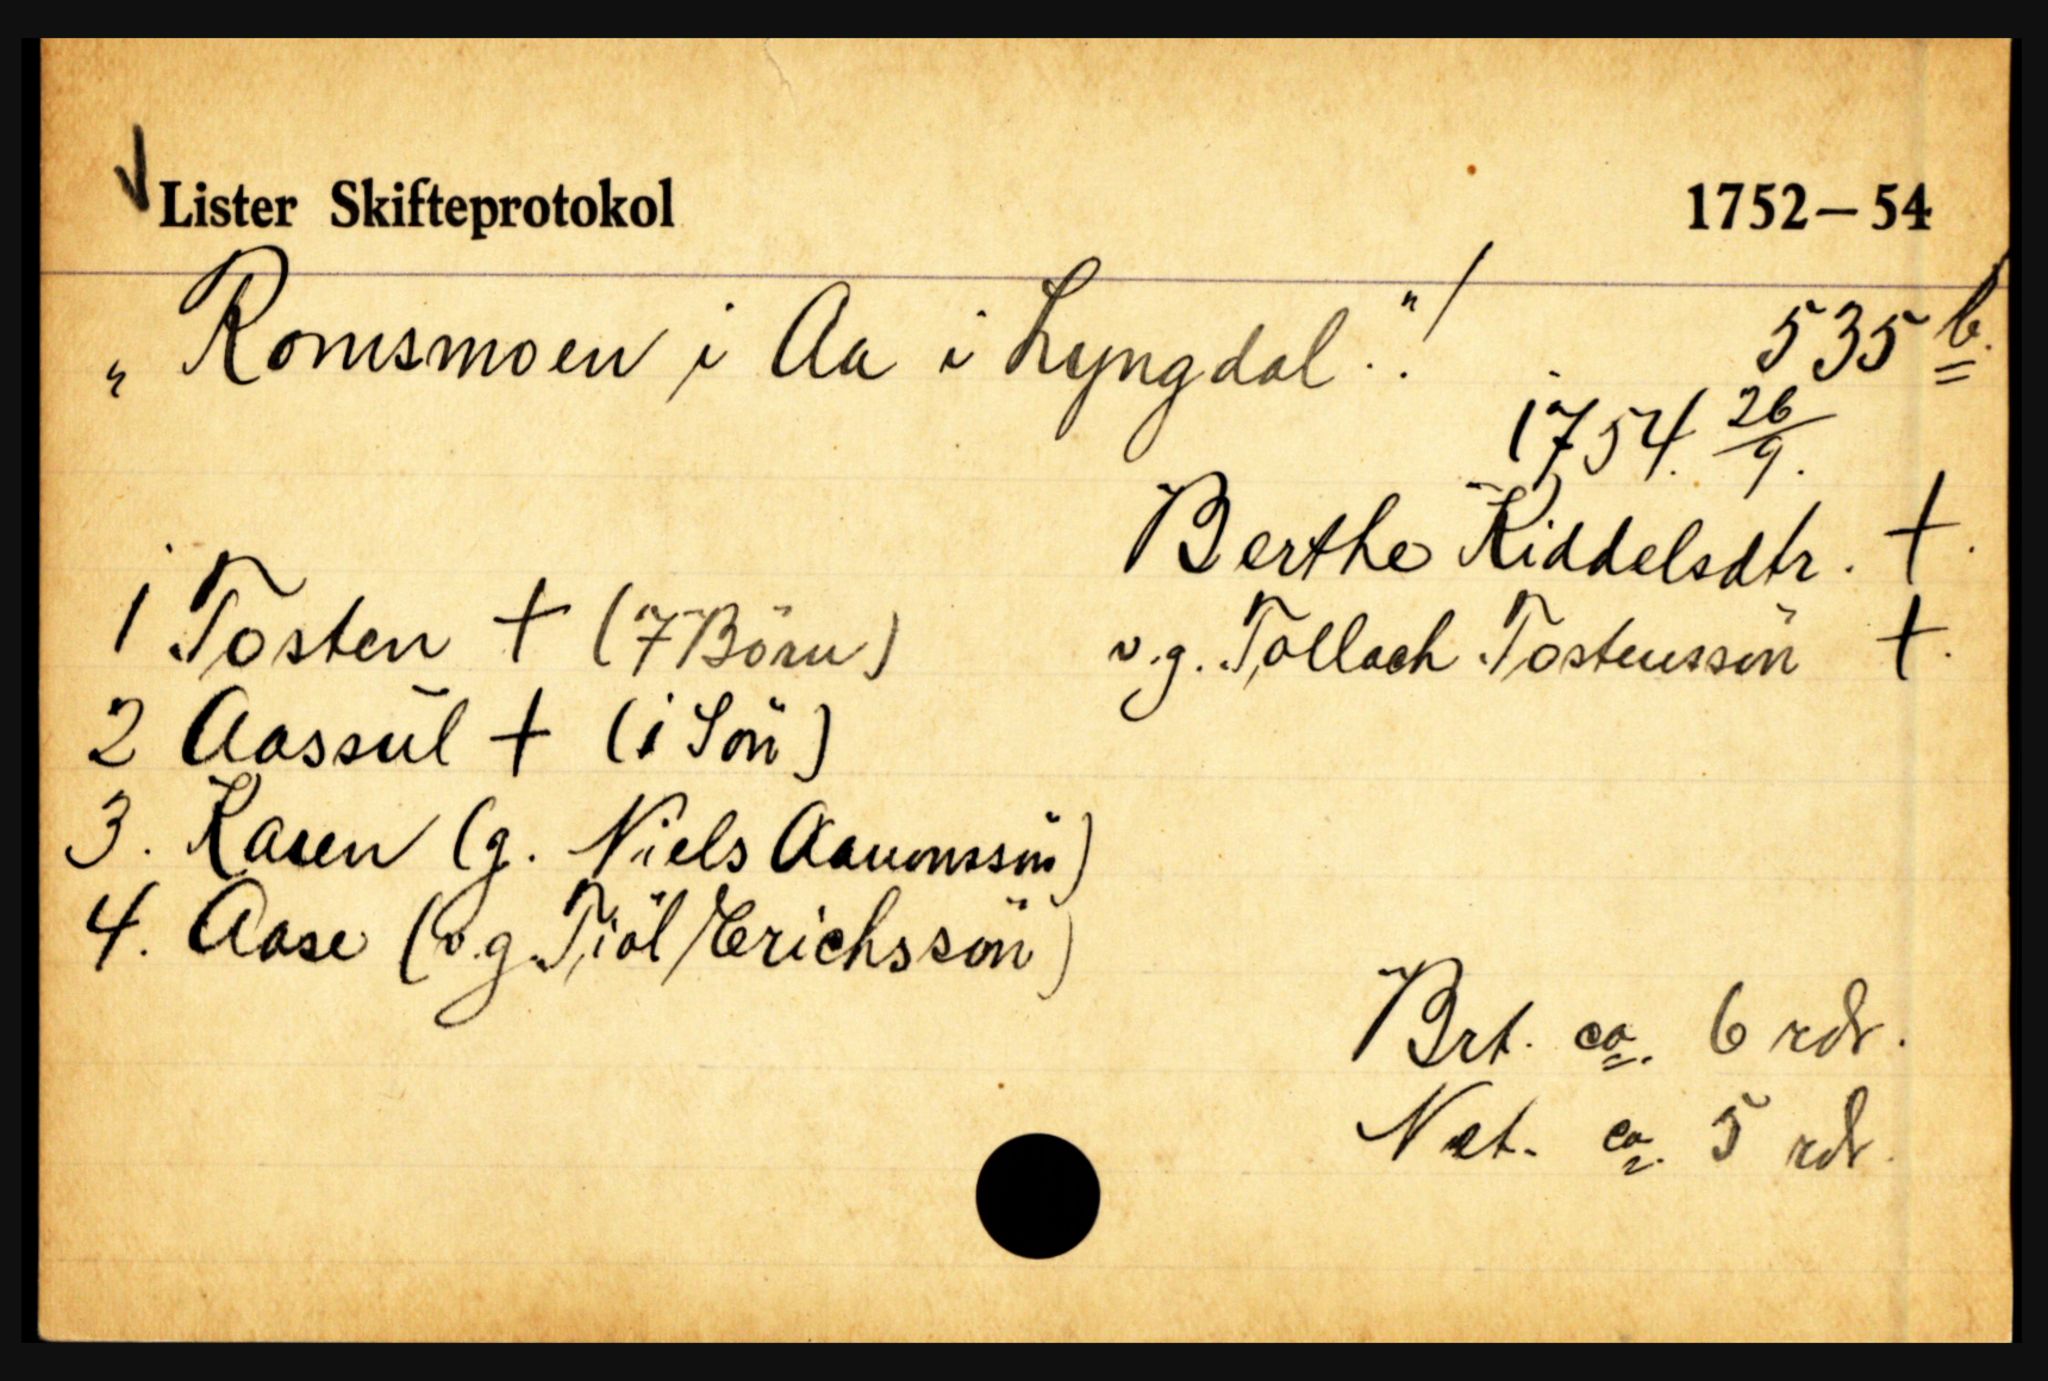 Lister Skifteprotokol 1752–54
„Romsmoen i Aa i Lyngdal."! 535 b.
1754. 26/9.
Berthe Kiddelsdtr. †.
1 Tosten † (7 Börn) v.g. Tollach Tostenssön †.
2 Aassül † (1 Sön)
3. Karen (g. Niels Aanonssön)
4. Aase (v.g. Tjöl Erichssön)
Brt. ca. 6 rdr.
Net. ca. 5 rdr.